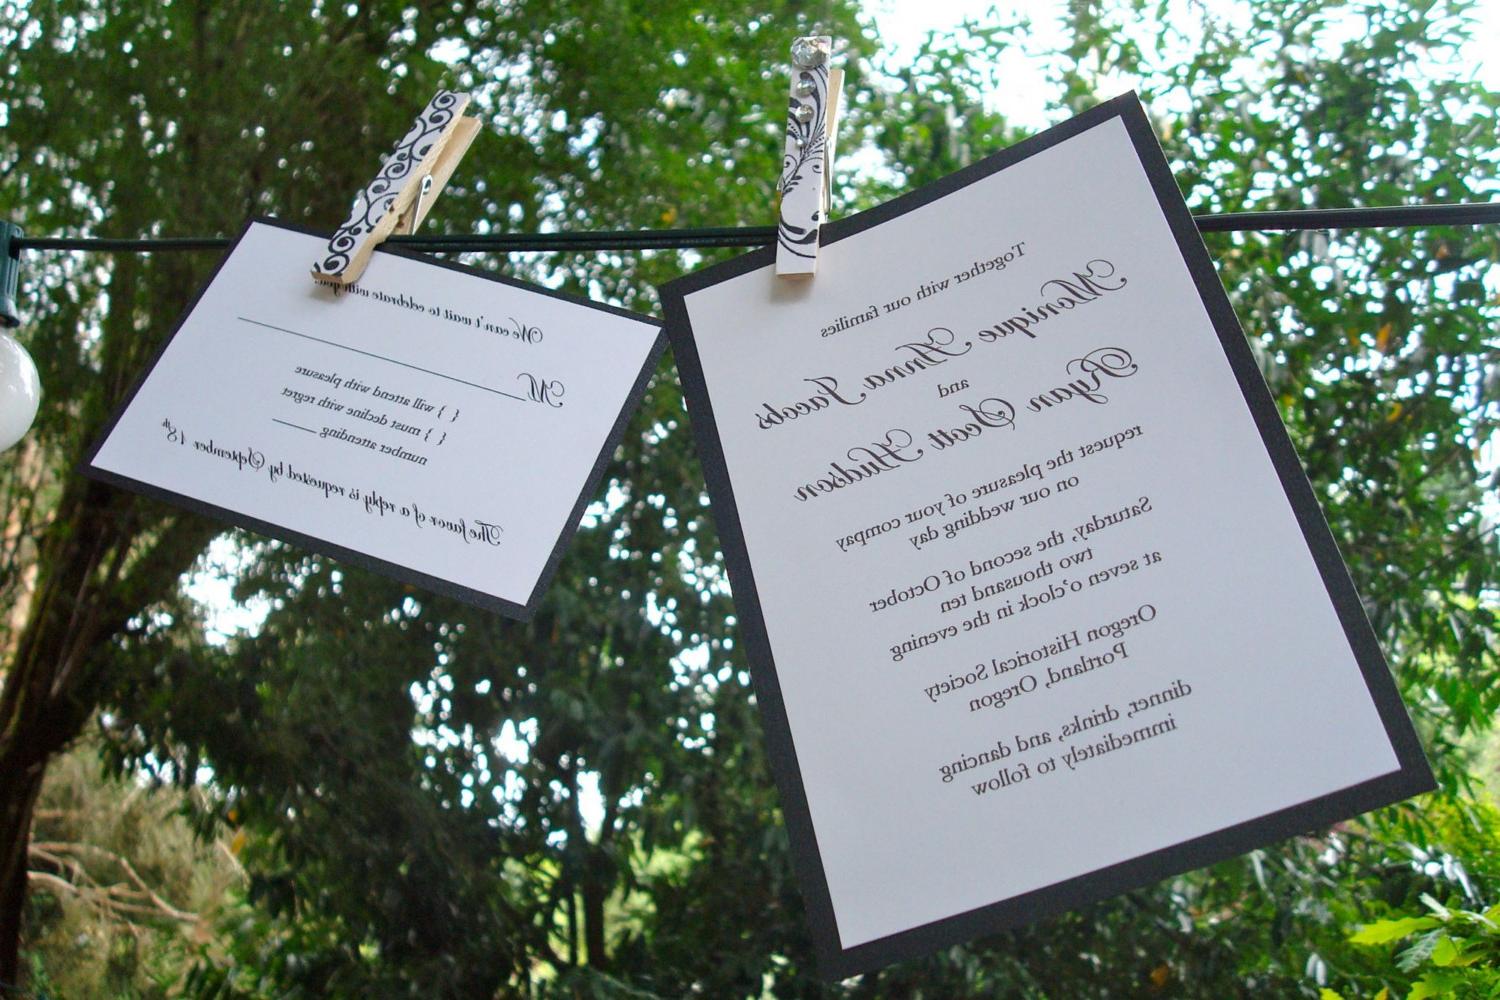 We can't wait to celebrate with you!
M
{ } will attend with pleasure
{ } must decline with regret
number attending
The favor of a reply is requested by September 18th
Together with our families
Monique Anna Jacobs
and
Ryan Scott Hudson
request the pleasure of your compay
on our wedding day
Saturday, the second of October
two thousand ten
at seven o'clock in the evening
Oregon Historical Society
Portland, Oregon
dinner, drinks, and dancing
immediately to follow